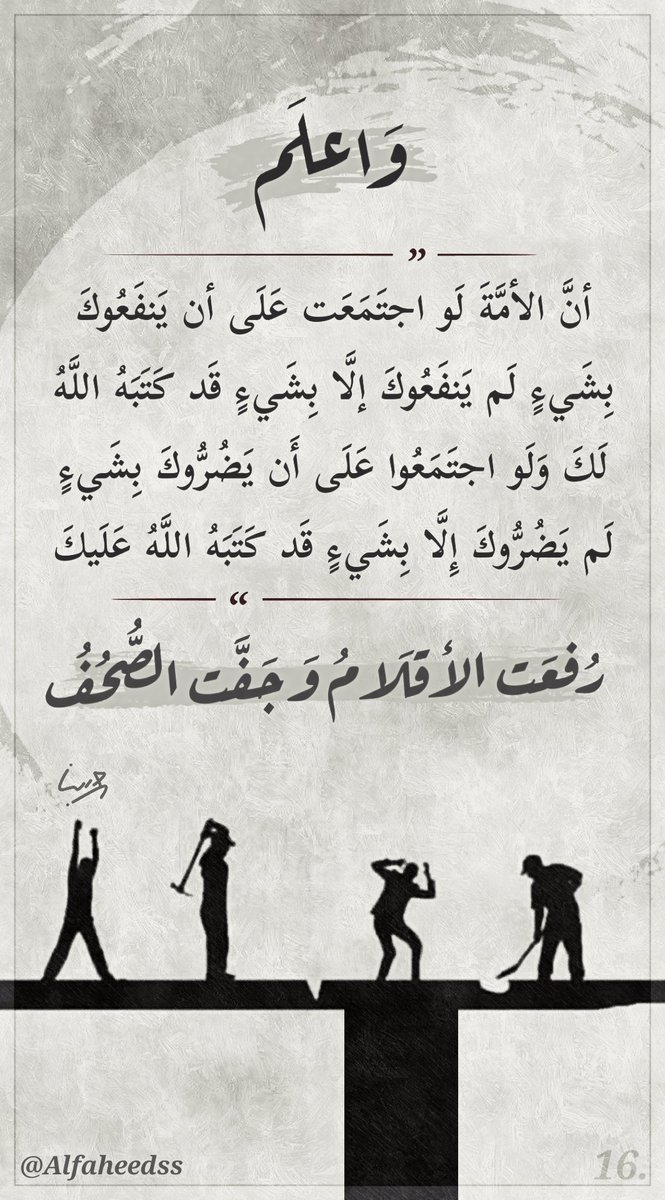 وَاعلَم
”
أنَّ الأمَّةَ لَو اجتَمَعَت عَلَى أن يَنفَعُوكَ
بِشَيءٍ لَم يَنفَعُوكَ إلَّا بِشَيءٍ قَد كَتَبَهُ اللَّهُ
لَكَ وَلَو اجتَمَعُوا عَلَى أَن يَضُرُّوكَ بِشَيءٍ
لَم يَضُرُّوكَ إِلَّا بِشَيءٍ قَد كَتَبَهُ اللَّهُ عَلَيكَ
“
رُفعَت الأقلَامُ وَجَفَّت الصُّحُفُ
@Alfaheedss
16.